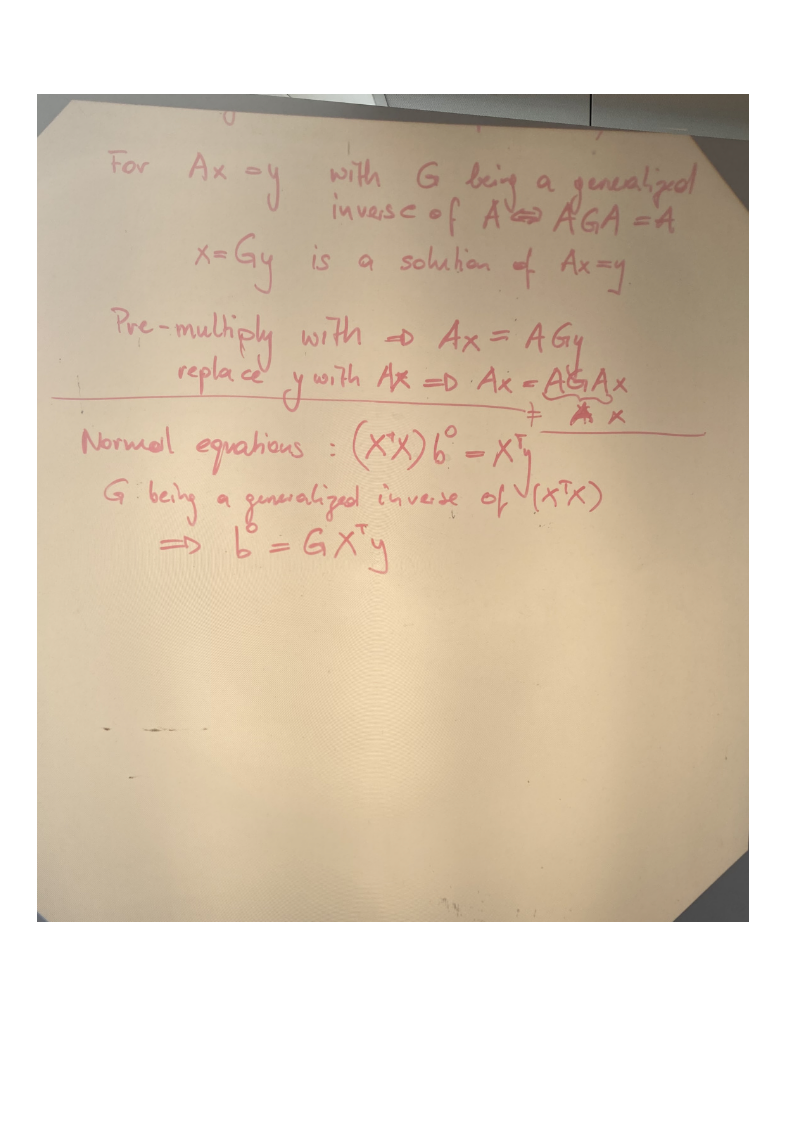 For Ax = y with G being a generalized
inverse of A ⇔ AGA = A
x = Gy is a solution of Ax = y
Pre-multiply with ⇒ Ax = AGy
replace y with Ax ⇒ Ax = AGAx
= A x
Normal equations : (XᵀX) b⁰ = Xᵀy
G being a generalized inverse of (XᵀX)
⇒ b⁰ = G Xᵀy